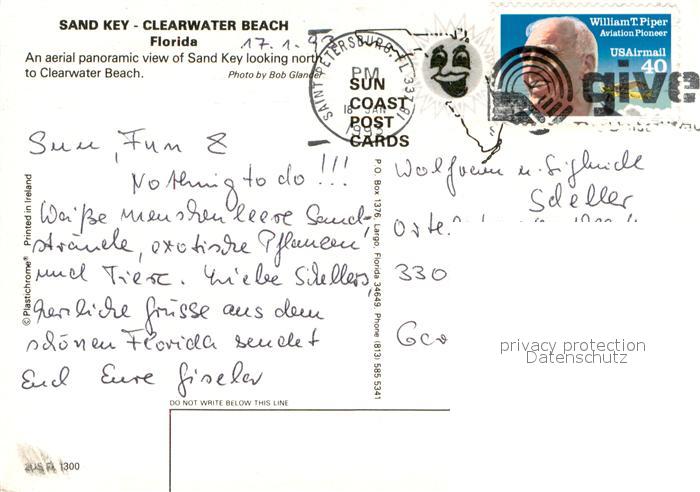 SAND KEY - CLEARWATER BEACH
Florida
17.1.93
An aerial panoramic view of Sand Key looking north
to Clearwater Beach.
Photo by Bob Glander
SAINT PETERSBURG, FL 33781
PM
18 JAN
1993
SUN
COAST
POST
CARDS
William T. Piper
Aviation Pioneer
USAirmail
40
give
Sun, Fun &
Nothing to do !!!
Weiße menschenleere Sand-
strände, exotische Pflanzen
und Tiere. Liebe Schellers,
herzliche Grüsse aus dem
schönen Florida sendet
Euch Eure Gisela
Wolfram u. Sieglinde
Scheller
330
© Plastichrome® Printed in Ireland
P.O. Box 1376, Largo, Florida 34649. Phone (813) 585 5341
DO NOT WRITE BELOW THIS LINE
1300
privacy protection
Datenschutz